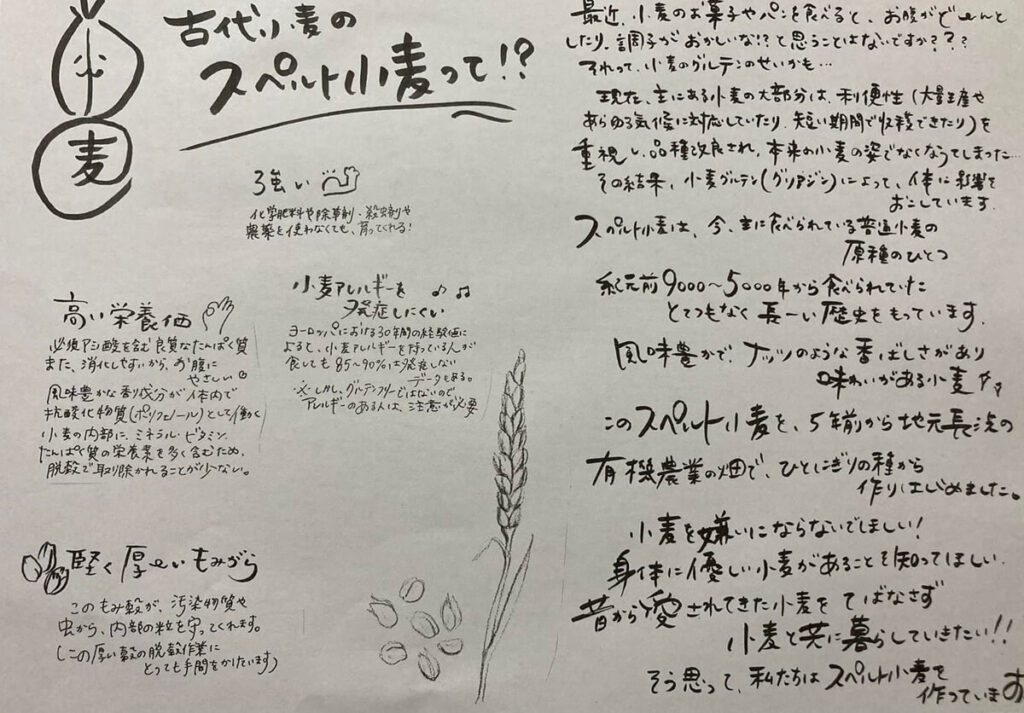 小
麦
古代小麦の
スペルト小麦って!?
強い
化学肥料や除草剤・殺虫剤や
農薬を使わなくても、育ってくれる!
高い栄養価
必須アミノ酸を含む良質なたんぱく質
また、消化しやすいから、お腹に
やさしい。
風味豊かな香り成分が体内で
抗酸化物質(ポリフェノール)として働く
小麦の内部に、ミネラル・ビタミン、
たんぱく質の栄養素を多く含むため、
脱穀で取り除かれることが少ない。
小麦アレルギーを
発症しにくい
ヨーロッパにおける30年間の経験値に
よると、小麦アレルギーを持っている人が
食しても85~90%は発症しない
データもある。
※しかし、グルテンフリーではないので
アレルギーのある人は、ご注意が必要
堅く厚~いもみがら
このもみ殻が、汚染物質や
虫から、内部の粒を守ってくれます。
(この厚い殻の脱穀作業に
とっても手間をかけています)
最近、小麦のお菓子やパンを食べると、お腹がど~んと
したり、調子がおかしいな!?と思うことはないですか???
それって、小麦のグルテンのせいかも…
現在、主にある小麦の大部分は、利便性(大量生産や
あらゆる気候に対応していたり、短い期間で収穫できたり)を
重視し、品種改良され、本来の小麦の姿でなくなってしまった…
その結果、小麦グルテン(グリアジン)によって、体に影響を
おこしています。
スペルト小麦は、今、主に食べられている普通小麦の
原種のひとつ
紀元前9000~5000年から食べられていた
とてつもなく長~い歴史をもっています。
風味豊かで、ナッツのような香ばしさがあり
味わいがある小麦
このスペルト小麦を、5年前から地元長浜の
有機農業の畑で、ひとにぎりの種から
作りはじめました。
小麦を嫌いにならないでほしい!
身体に優しい小麦があることを知ってほしい.
昔から愛されてきた小麦をてばなさず
小麦と共に暮らしていきたい!!
そう思って、私たちはスペルト小麦を
作っています